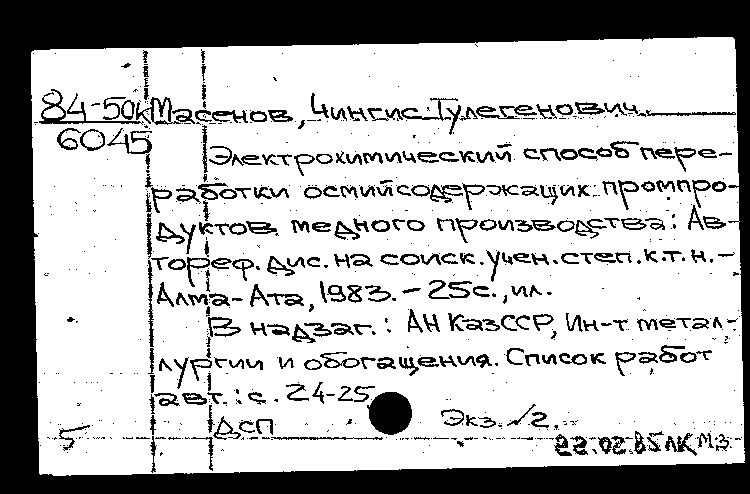 84-50к Масенов, Чингис Тулегенович.
6045
Электрохимический способ пере-
работки осмийсодержащих промпро-
дуктов медного производства: Ав-
тореф. дис. на соиск. учен. степ. к.т.н. -
Алма-Ата, 1983. - 25с., ил.
В надзаг.: АН КазССР, Ин-т метал-
лургии и обогащения. Список работ
авт.: с. 24-25
ДСП Экз. √2.
5 22.02.85 ЛК МЗ